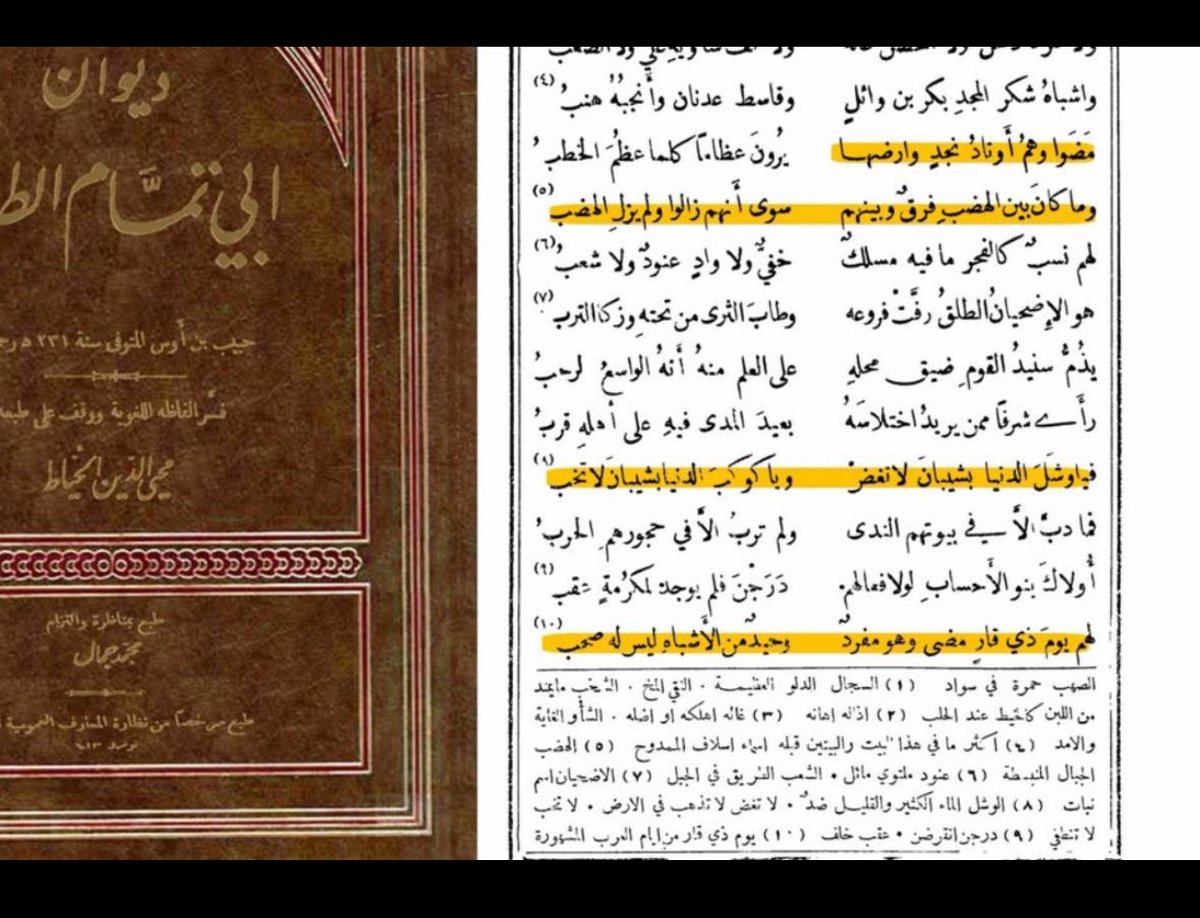 ديوان
ابي تمّام الط
حبيب بن أوس المتوفى سنة ٢٣١
فسّر الفاظه اللغوية ووقف على طبعه
محيي الدين الخياط
طبع بمناظرة والتزام
محمد جمال
طبع مرخصاً من نظارة المعارف العمومية
واشباهُ شكر المجدِ بكر بن وائلٍ وقاسط عدنان وأنجبهُ هنبُ (٤)
مَضَوا وهمُ أوتادُ نجدٍ وارضها يُرونَ عظاماً كلما عظمُ الخطبُ
وما كانَ بين الهضبِ فرقٌ وبينهم سوى أنهم زالوا ولم يزلِ الهضب (٥)
لهم نسبٌ كالفجر ما فيه مسلكٌ خفيٌّ ولا وادٍ عنودٌ ولا شعبُ (٦)
هو الإضحيانُ الطلقُ رفَّتْ فروعه وطابَ الثرى من تحته وزكا التربُ (٧)
يذُمُّ سنيدُ القومِ ضيق محلهِ على العلم منهُ أنهُ الواسعُ لرحبُ
رأے شرفًا ممن يريدُ اختلاسَهُ بعيدَ المدى فيهِ على أهلهِ قربُ
فيا وشَلَ الدنيا بشيبانَ لا تغضْ ويا كوكبَ الدنيا بشيبانَ لا تخب (٨)
فما دبَّ الاَّ في بيوتهم الندى ولم تربُ الاَّ في حجورهمِ الحربُ
أولاكَ بنو الأحسابِ لولا فعالهم دَرَجْنَ فلم يوجد لمكرُمةٍ عقب (٩)
لهم يومَ ذي قارٍ مضى وهو مفردٌ وحيدٌ من الأشباهِ ليس له صحب (١٠)
الصهب حمرة في سواد (١) السجال الدلو العظيمة . النقي المخ . الشخب ما يمتد
من اللبن كالخيط عند الحلب (٢) اذاله اهانه (٣) غاله اهلكه او اضله . الشأو الغاية
والامد (٤) اكثر ما في هذا البيت والبيتين قبله اسماء اسلاف الممدوح (٥) الهضب
الجبال المنبسطة (٦) عنود ملتوي مائل . الشعب الطريق في الجبل (٧) الاضحيان اسم
نبات (٨) الوشل الماء الكثير والقليل ضدٌّ . لا تغض لا تذهب في الارض . لا تخب
لا تنطفي (٩) درجن انقرضن . عقب خلف (١٠) يوم ذي قار من ايام العرب المشهورة